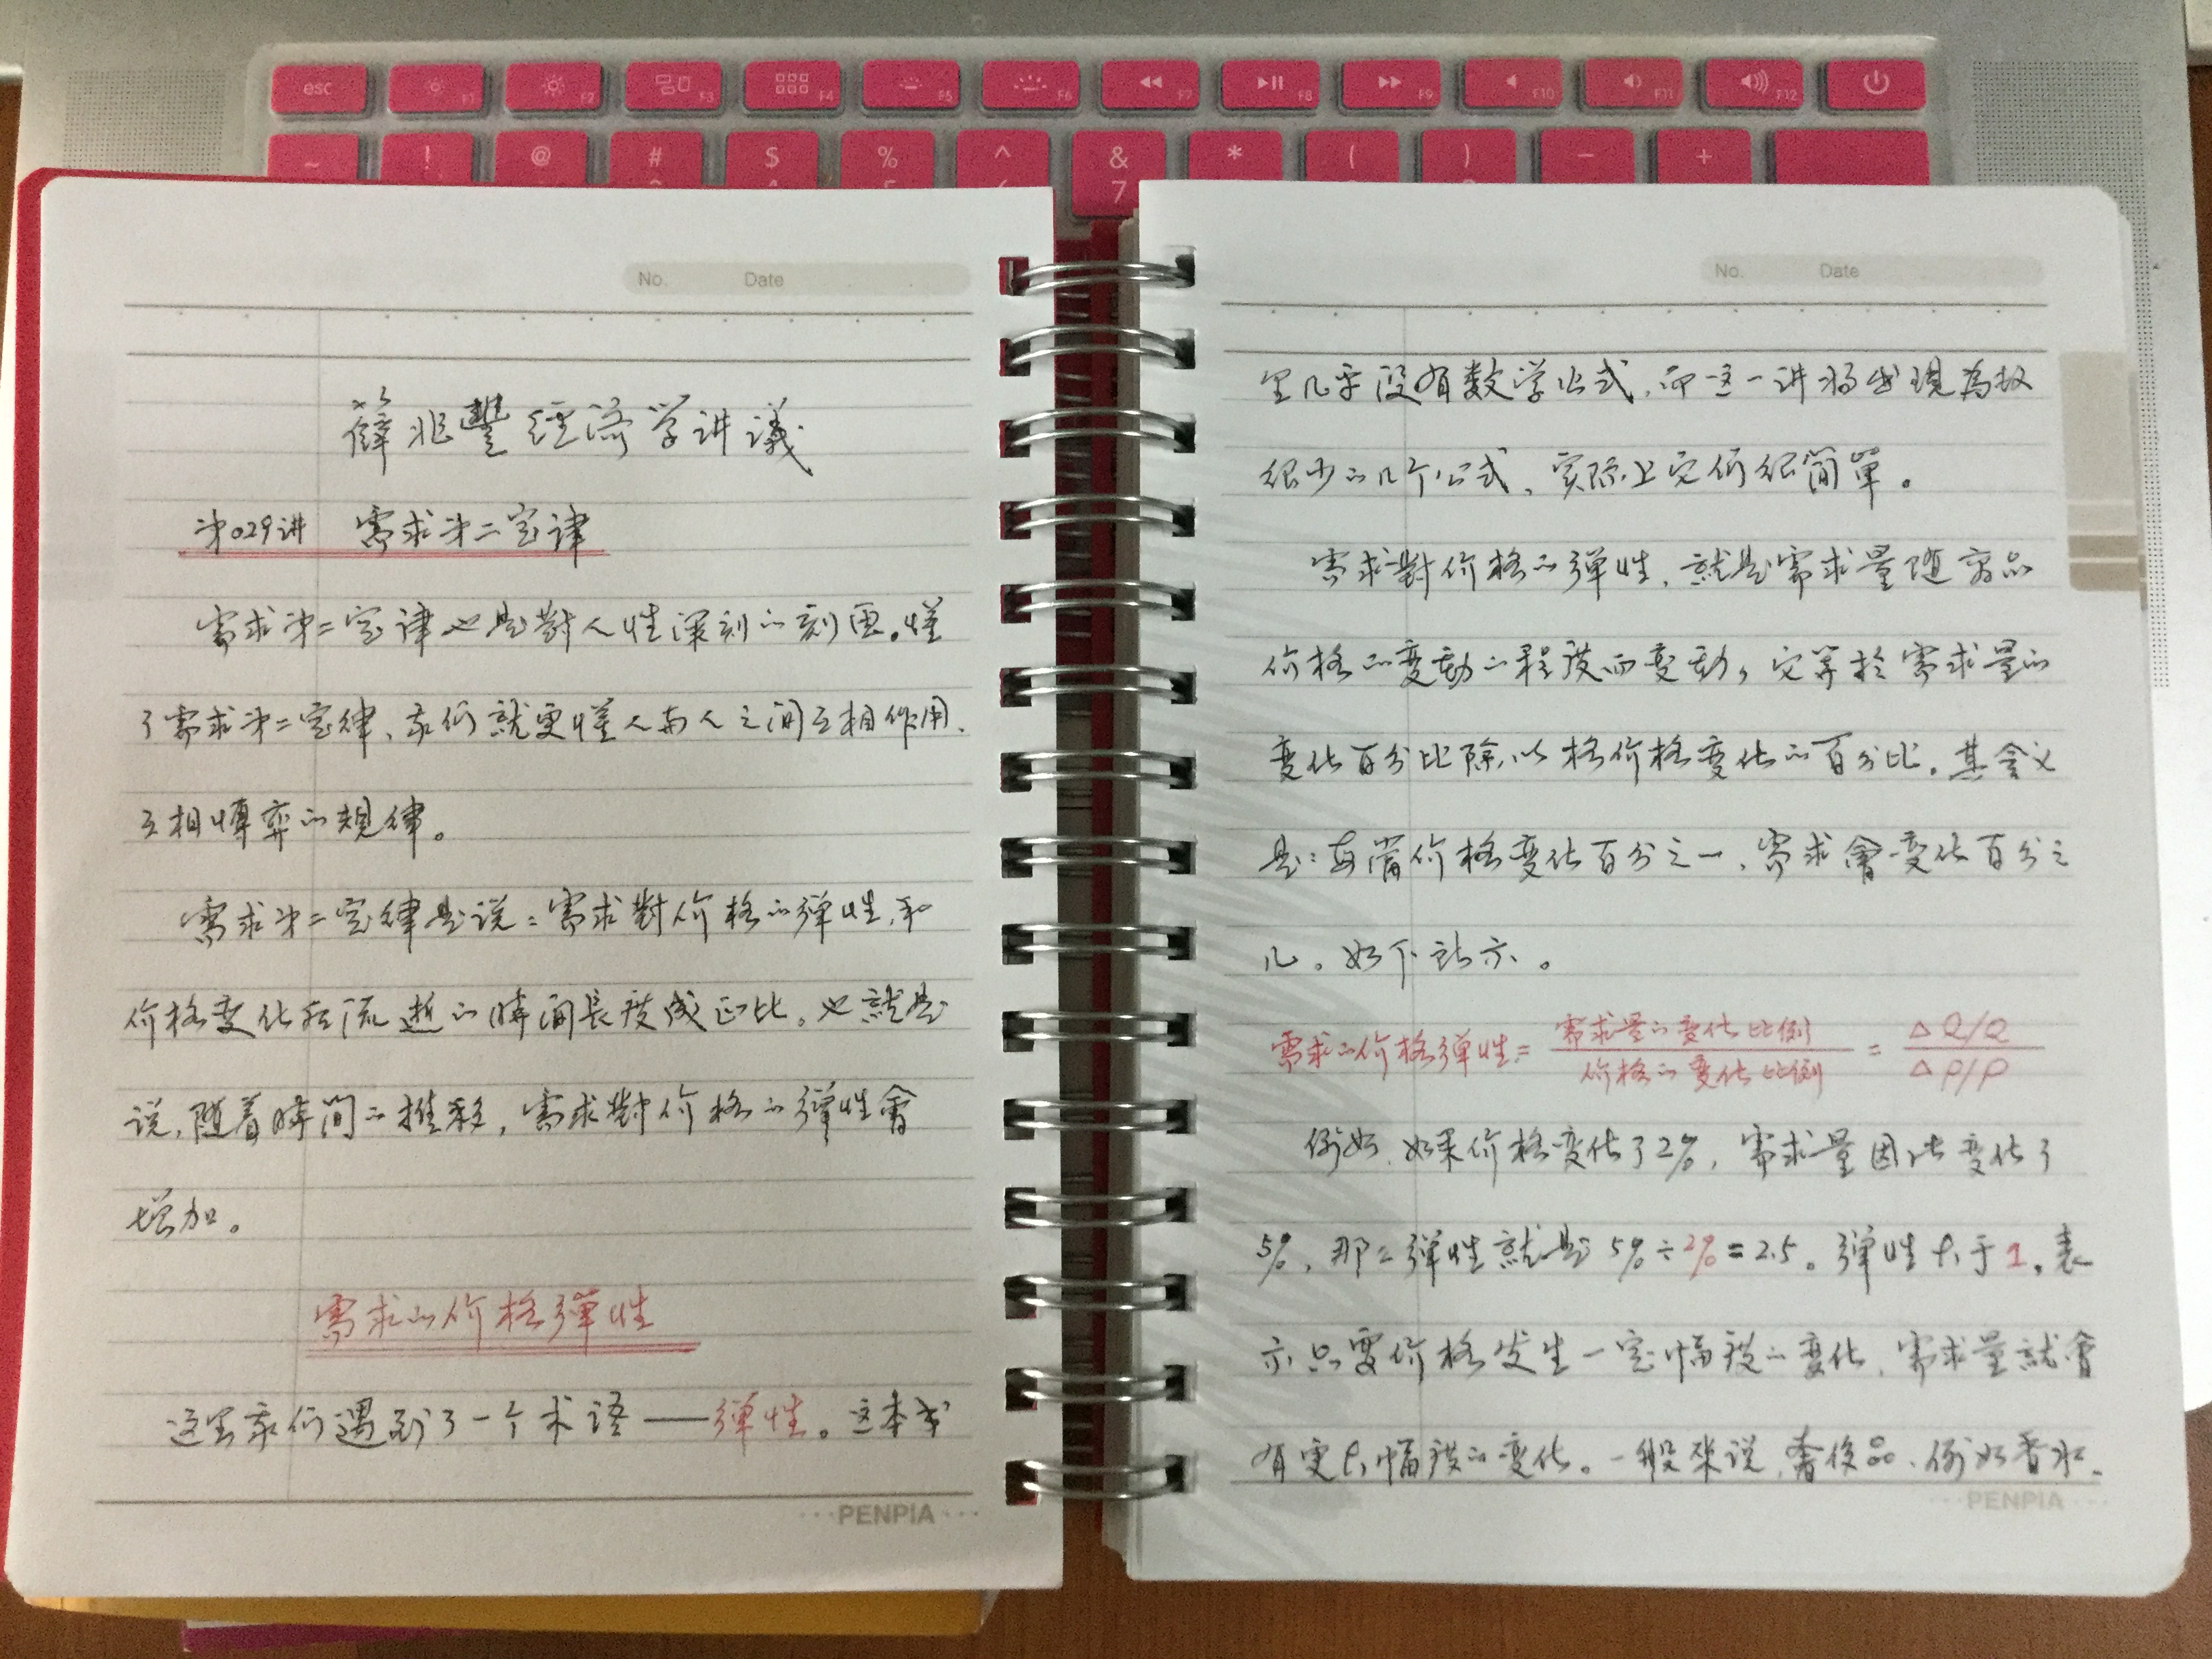 esc
F1
F2
F3
F4
F5
F6
F7
F8
F9
F10
F11
F12
~ ! @ # $ % ^ & * ( ) − +
7
No. Date
薛兆豐經济学讲議
第029讲 需求第二定律
需求第二定律也是對人性深刻的刻画。懂
了需求第二定律、我们就更懂人与人之间互相作用、
互相博弈的規律。
需求第二定律是说：需求對价格的弹性，和
价格变化后流逝的時间長度成正比。也就是
说，随着時间的推移，需求對价格的弹性會
增加。
需求的价格弹性
这里我们遇到了一个术语——弹性。这本书
PENPIA
No. Date
里几乎没有数学公式，而这一讲将出現為极
很少的几个公式、实际上它们很简單。
需求對价格的弹性，就是需求量随商品
价格的变動的程度而变動，它等於需求量的
变化百分比除以格价格变化的百分比。其含义
是：每當价格变化百分之一，需求會变化百分之
几。如下所示。
需求的价格弹性= 需求量的变化比例 / 价格的变化比例 = ΔQ/Q / ΔP/P
例如，如果价格变化了2%，需求量因此变化了
5%，那么弹性就是5%÷2%=2.5。弹性大于1，表
示只要价格发生一定幅度的变化，需求量就會
有更大幅度的变化。一般来说，奢侈品、例如香水、
PENPIA